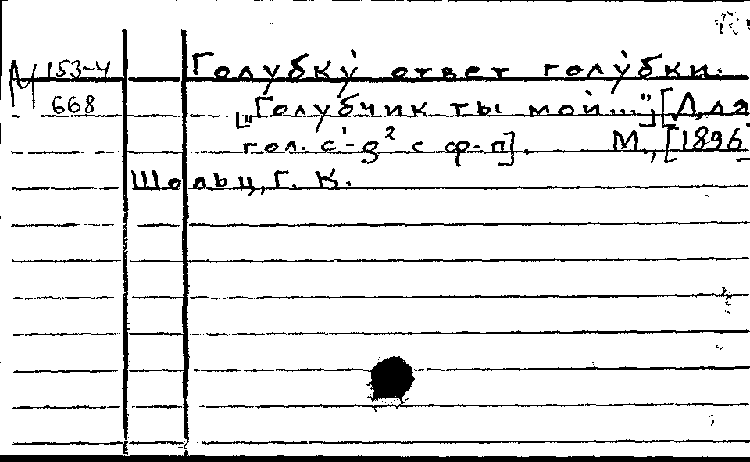 М 153-4
668
Голубку́ ответ голу́бки.
["Голубчик ты мой..."] [Для
гол. c¹-g² с ф-п]. М., [1896
Шольц, Г. К.